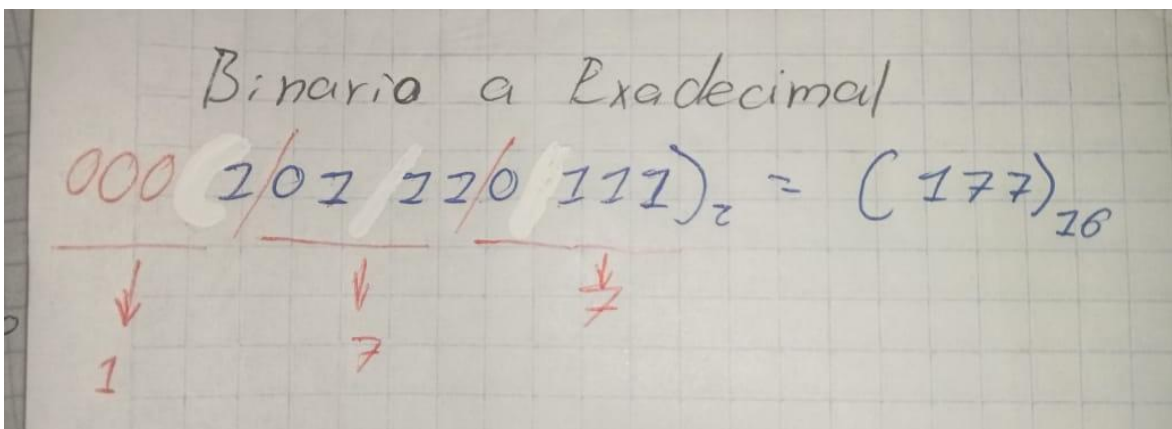 Binario a Exadecimal
000(1/01 11/0 111)₂ = (177)₁₆
1 7 7